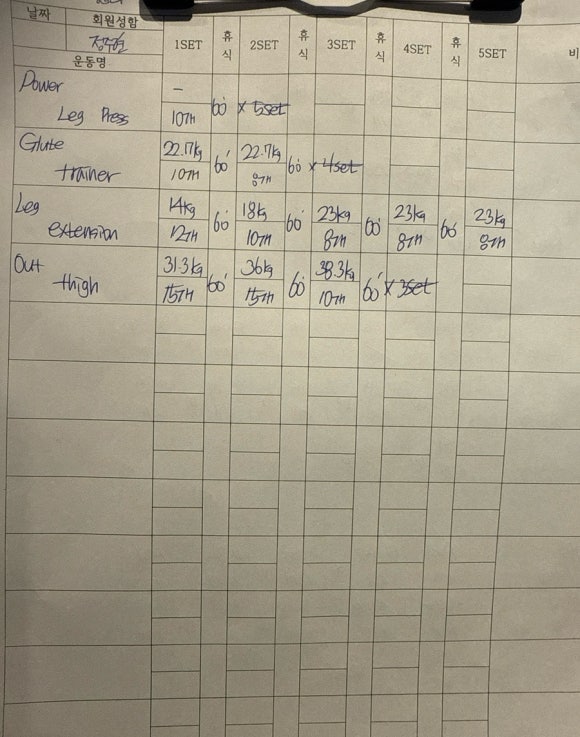 날짜 회원성함
정주현
운동명 1SET 휴식 2SET 휴식 3SET 휴식 4SET 휴식 5SET 비
Power Leg Press - 10개 60' × 5set
Glute trainer 22.7kg 10개 60' 22.7kg 8개 60' × 4set
Leg extension 14kg 12개 60' 18kg 10개 60' 23kg 8개 60' 23kg 8개 60' 23kg 8개
Out thigh 31.3kg 15개 60' 36kg 15개 60' 38.3kg 10개 60' × 3set